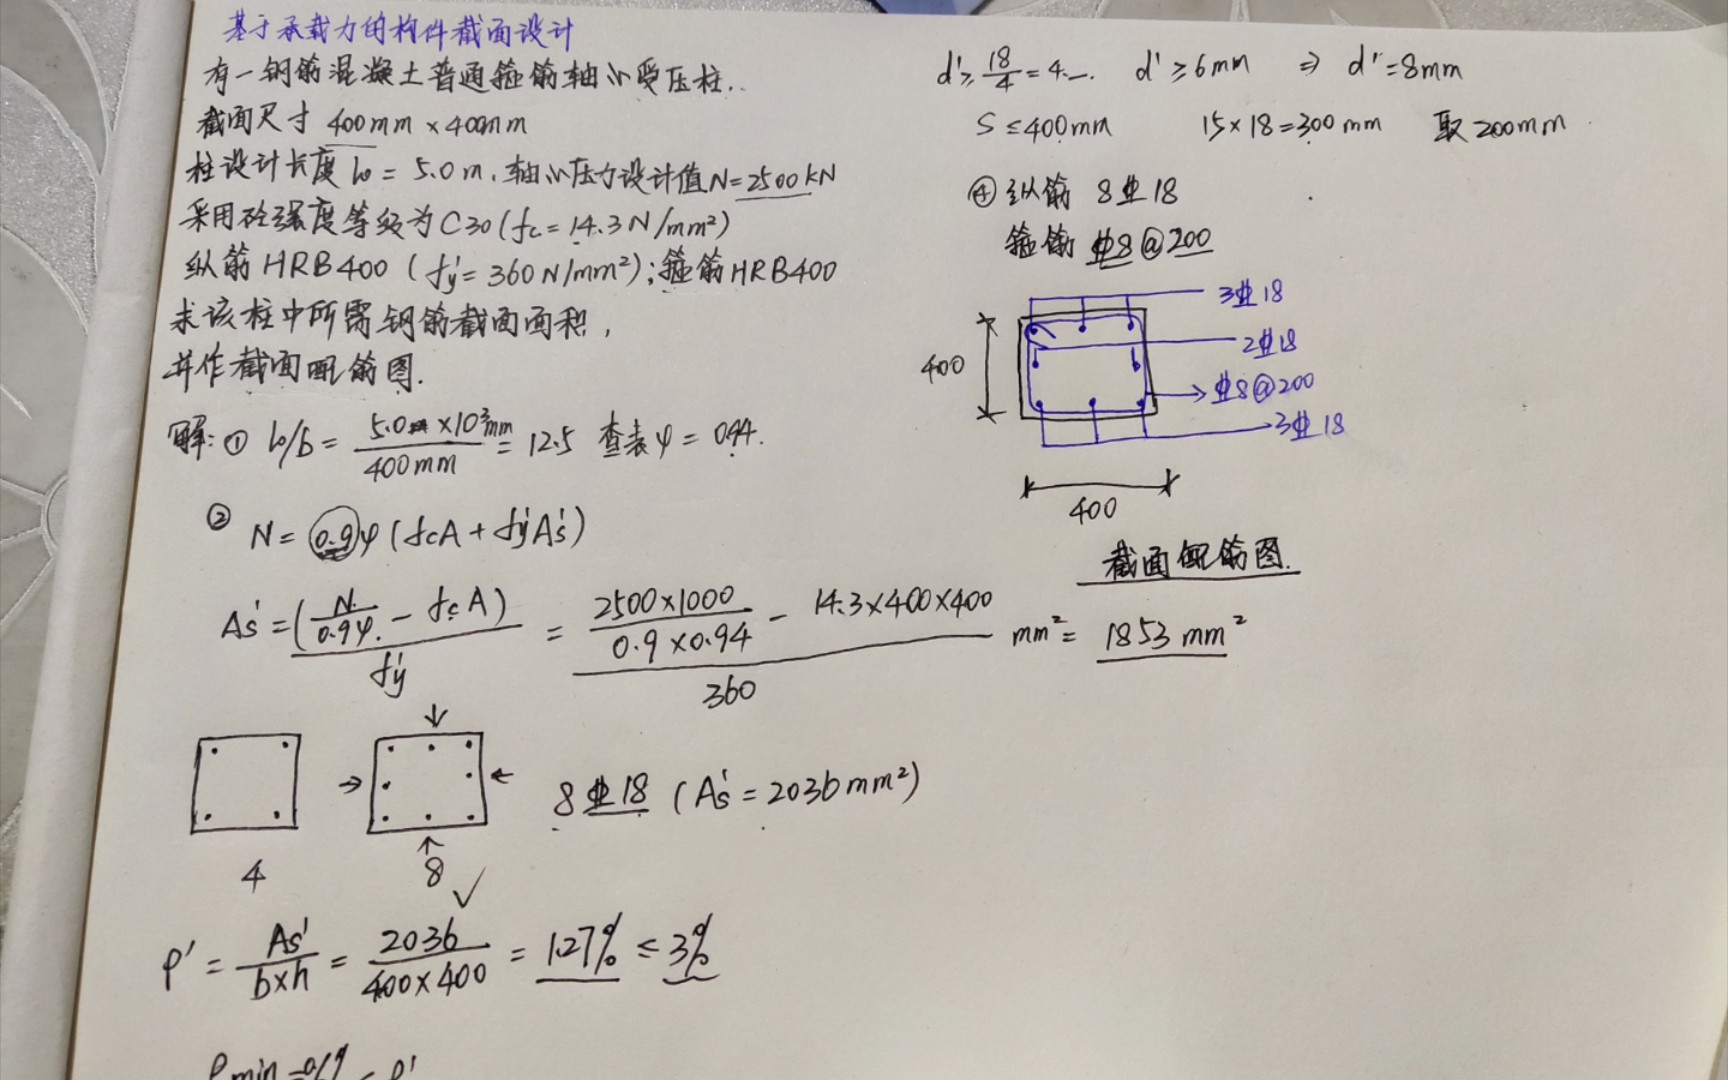 基于承载力的构件截面设计
有一钢筋混凝土普通箍筋轴心受压柱.
截面尺寸 400mm×400mm
柱设计长度 l₀= 5.0m, 轴心压力设计值N=2500kN
采用砼强度等级为C30(fc=14.3N/mm²)
纵筋HRB400 (fy'=360N/mm²);箍筋HRB400
求该柱中所需钢筋截面面积,
并作截面配筋图.
解:① l₀/b = 5.0×10³mm / 400mm = 12.5 查表φ = 0.94.
② N = 0.9φ(fcA + fy'As')
As' = (N/0.9φ. - fcA) / fy' = (2500×1000 / 0.9×0.94 - 14.3×400×400) / 360 mm² = 1853 mm²
4
8 ✓
8⏀18 (As' = 2036mm²)
ρ' = As' / b×h = 2036 / 400×400 = 1.27% ≤ 3%
ρmin = < ρ'
d'≥ 18/4 = 4.— d'≥6mm ⇒ d'=8mm
S≤400mm 15×18=300mm 取200mm
④纵筋 8⏀18
箍筋 ⏀8@200
3⏀18
2⏀18
⏀8@200
3⏀18
400
400
截面配筋图.